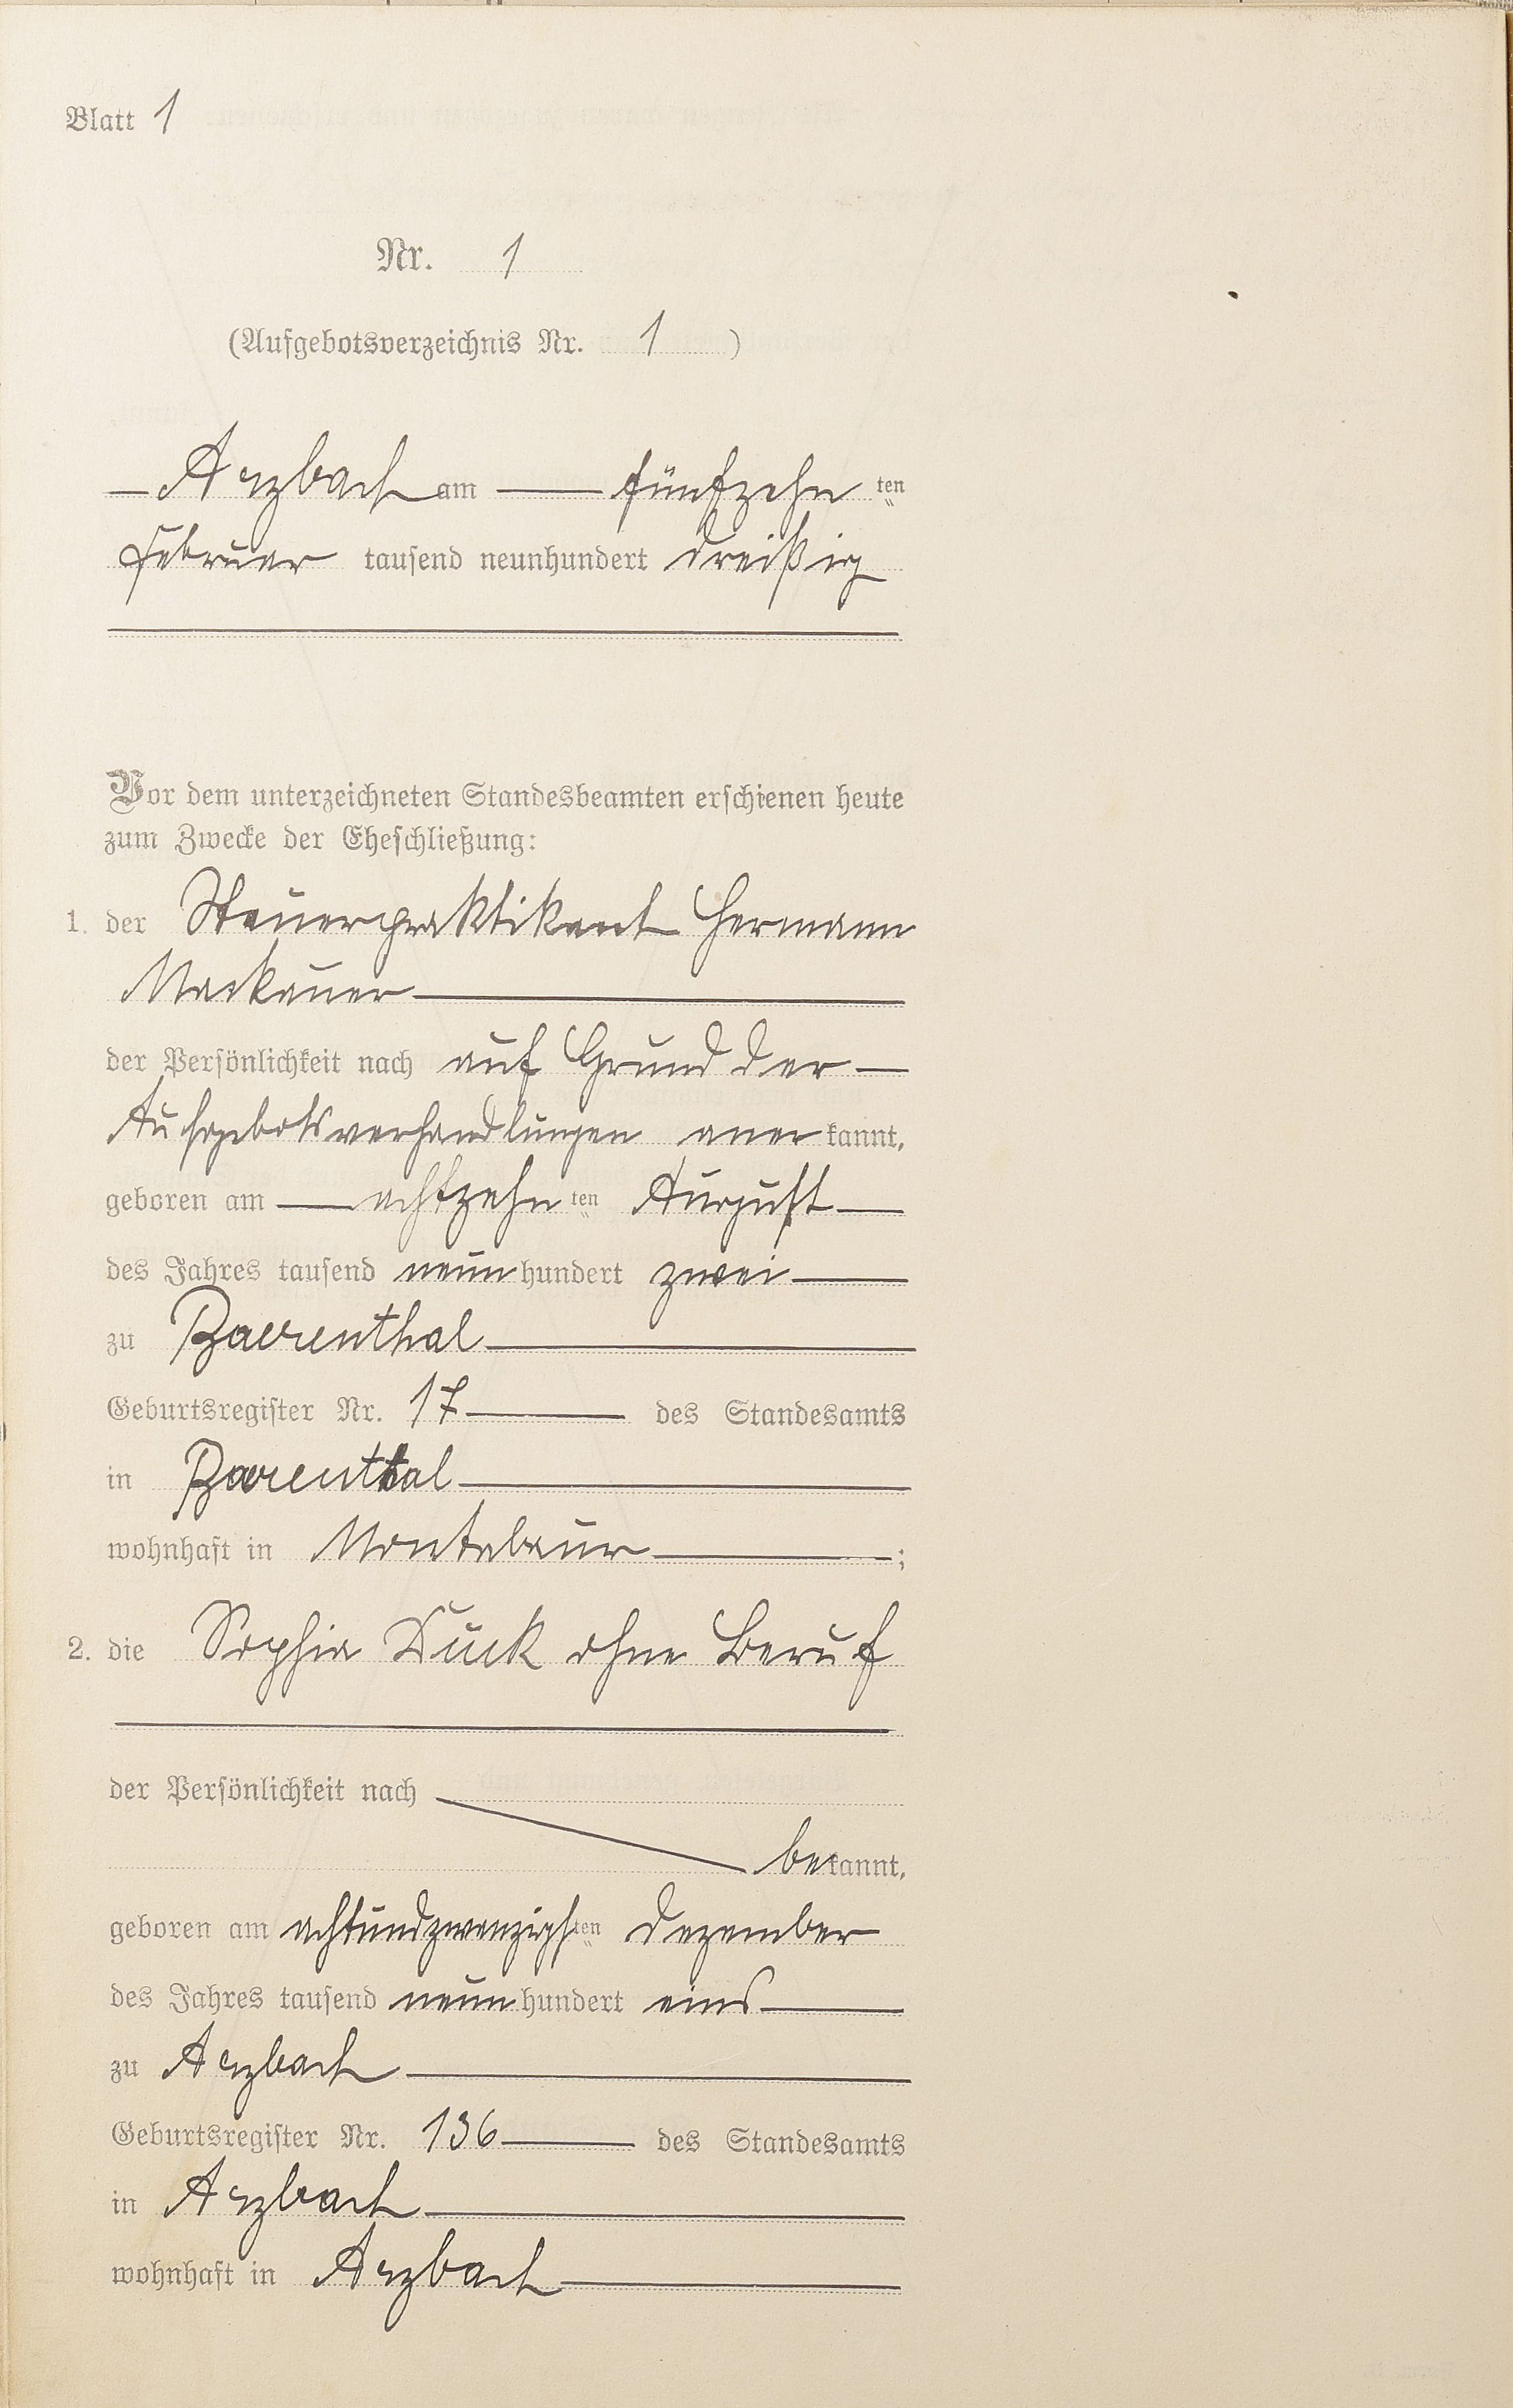 Blatt 1
Nr. 1
(Aufgebotsverzeichnis Nr. 1 )
Arzbach am fünfzehn ten
Februar tausend neunhundert dreißig
Vor dem unterzeichneten Standesbeamten erschienen heute
zum Zwecke der Eheschließung:
1. der Steuerpraktikant Hermann
Mackauer
der Persönlichkeit nach auf Grund der
Aufgebotsverhandlungen anerkannt,
geboren am achtzehn ten August
des Jahres tausend neunhundert zwei
zu Baerenthal
Geburtsregister Nr. 17 des Standesamts
in Baerenthal
wohnhaft in Montabaur ;
2. die Sophia Dück ohne Beruf
der Persönlichkeit nach
bekannt,
geboren am achtundzwanzigsten Dezember
des Jahres tausend neunhundert eins
zu Arzbach
Geburtsregister Nr. 136 des Standesamts
in Arzbach
wohnhaft in Arzbach